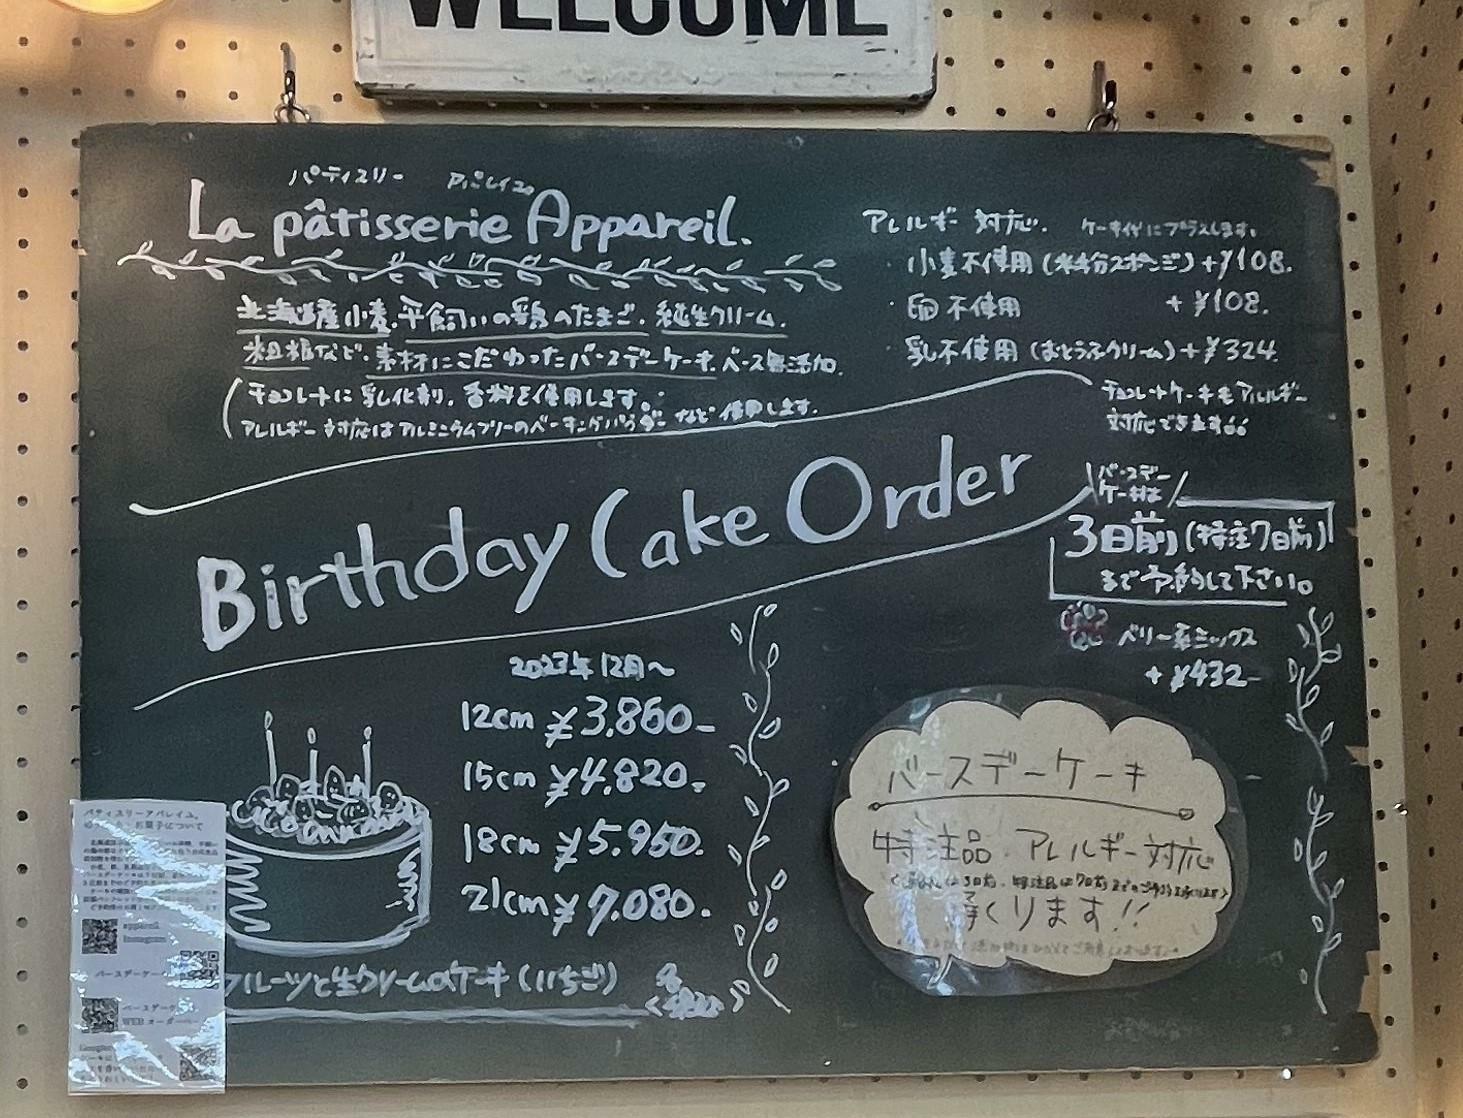 WELCOME
パティスリー アパレイユ。
La pâtisserie Appareil.
北海道産小麦、平飼いの鶏のたまご、純生クリーム、
粗糖など、素材にこだわったバースデーケーキ。ベース無添加。
(チョコレートに乳化剤、香料を使用します。
アレルギー対応はアルミニウムフリーのベーキングパウダーなど使用します。
アレルギー対応. ケーキ代にプラスします。
・小麦不使用(米粉スポンジ)+¥108.
・卵不使用 +¥108.
・乳不使用(おとうふクリーム)+¥324.
チョコレートケーキもアレルギー
対応できます
Birthday Cake Order
バースデー
ケーキは
3日前(特注7日前)
まで予約して下さい。
ベリー系ミックス
+¥432-
2023年12月〜
12cm ¥3,860-
15cm ¥4,820-
18cm ¥5,950.
21cm ¥7,080.
フルーツと生クリームのケーキ(いちご)
バースデーケーキ
特注品・アレルギー対応
承くります!!
パティスリーアパレイユ。
お菓子について
appareil.
Instagram
バースデーケーキ
バースデー
WEBオーダー
Google